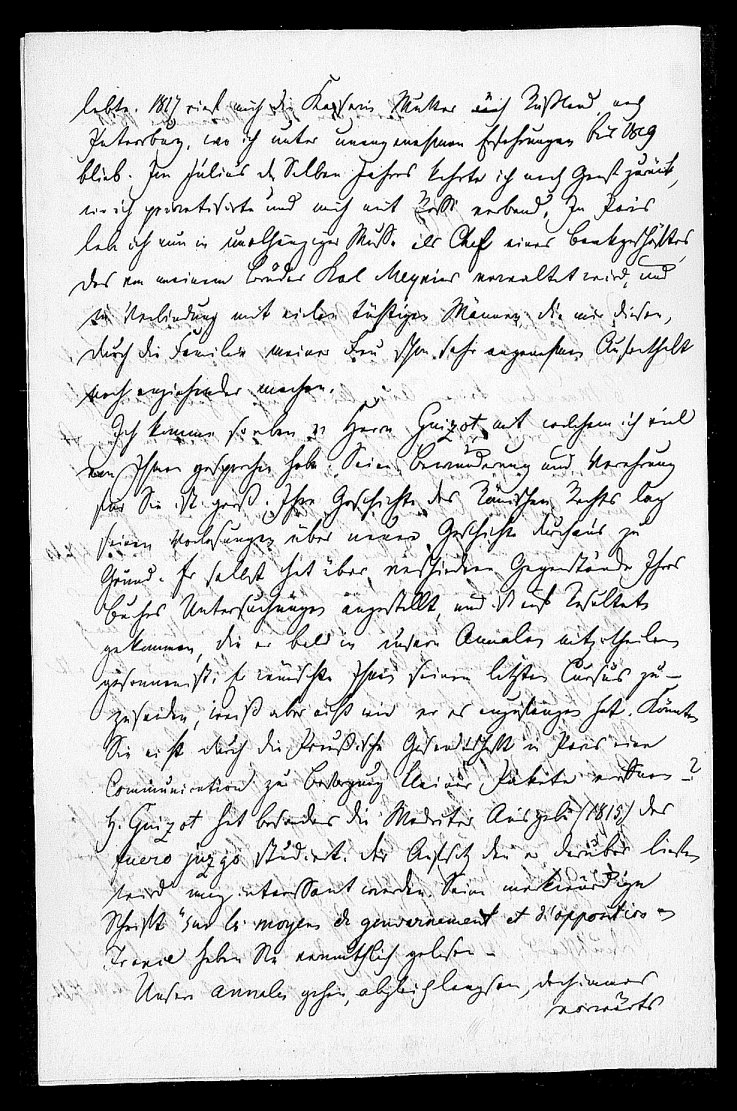 lebte. 1817 rief mich die Kaiserin Mutter nach Rußland, nach
Petersburg, wo ich unter unangenehmen Erfahrungen bis 1819
blieb. Im Julius desselben Jahres kehrte ich nach Genf zurück,
wo ich privatisirte und mich mit Rossi verband. In Paris
leb ich nun in unabhängiger Muße als Chef eines Bankgeschäftes,
das von meinem Bruder Karl Meynier verwaltet wird, und
in Verbindung mit vielen tüchtigen Männern die mir diesen,
durch die Familie meiner Frau schon sehr angenehmen Aufenthalt
noch anziehender machen.
Ich komme soeben von Herrn Guizot, mit welchem ich viel
von Ihnen gesprochen habe. Seine Bewunderung und Verehrung
für Sie ist groß. Ihre Geschichte des Römischen Rechts lag
seinen Vorlesungen über neuere Geschichte durchaus zu
Grund. Er selbst hat über verschiedene Gegenstände Ihres
Buches Untersuchungen angestellt, und ist auf Resultate
gekommen, die er bald in unsern Annalen mitzutheilen
gesonnen ist. Er wünschte Ihnen seinen letzten Cursus zu-
zusenden, weiß aber nicht wie er es anzufangen hat. Könnten
Sie nicht durch die Preußische Gesandtschaft in Paris eine
Communication zu Besorgung kleiner Pakete eröffnen?
H. Guizot hat besonders die Madriter Ausgabe (1815) des
fuero juzgo studiert. Der Aufsatz den er darüber liefern
wird mag interessant werden. Seine merkwürdige
Schrift "sur les moyens de gouvernement et d'opposition en
France haben Sie vermuthlich gelesen –
Unsere Annalen gehen, obgleich langsam, doch immer
vorwärts